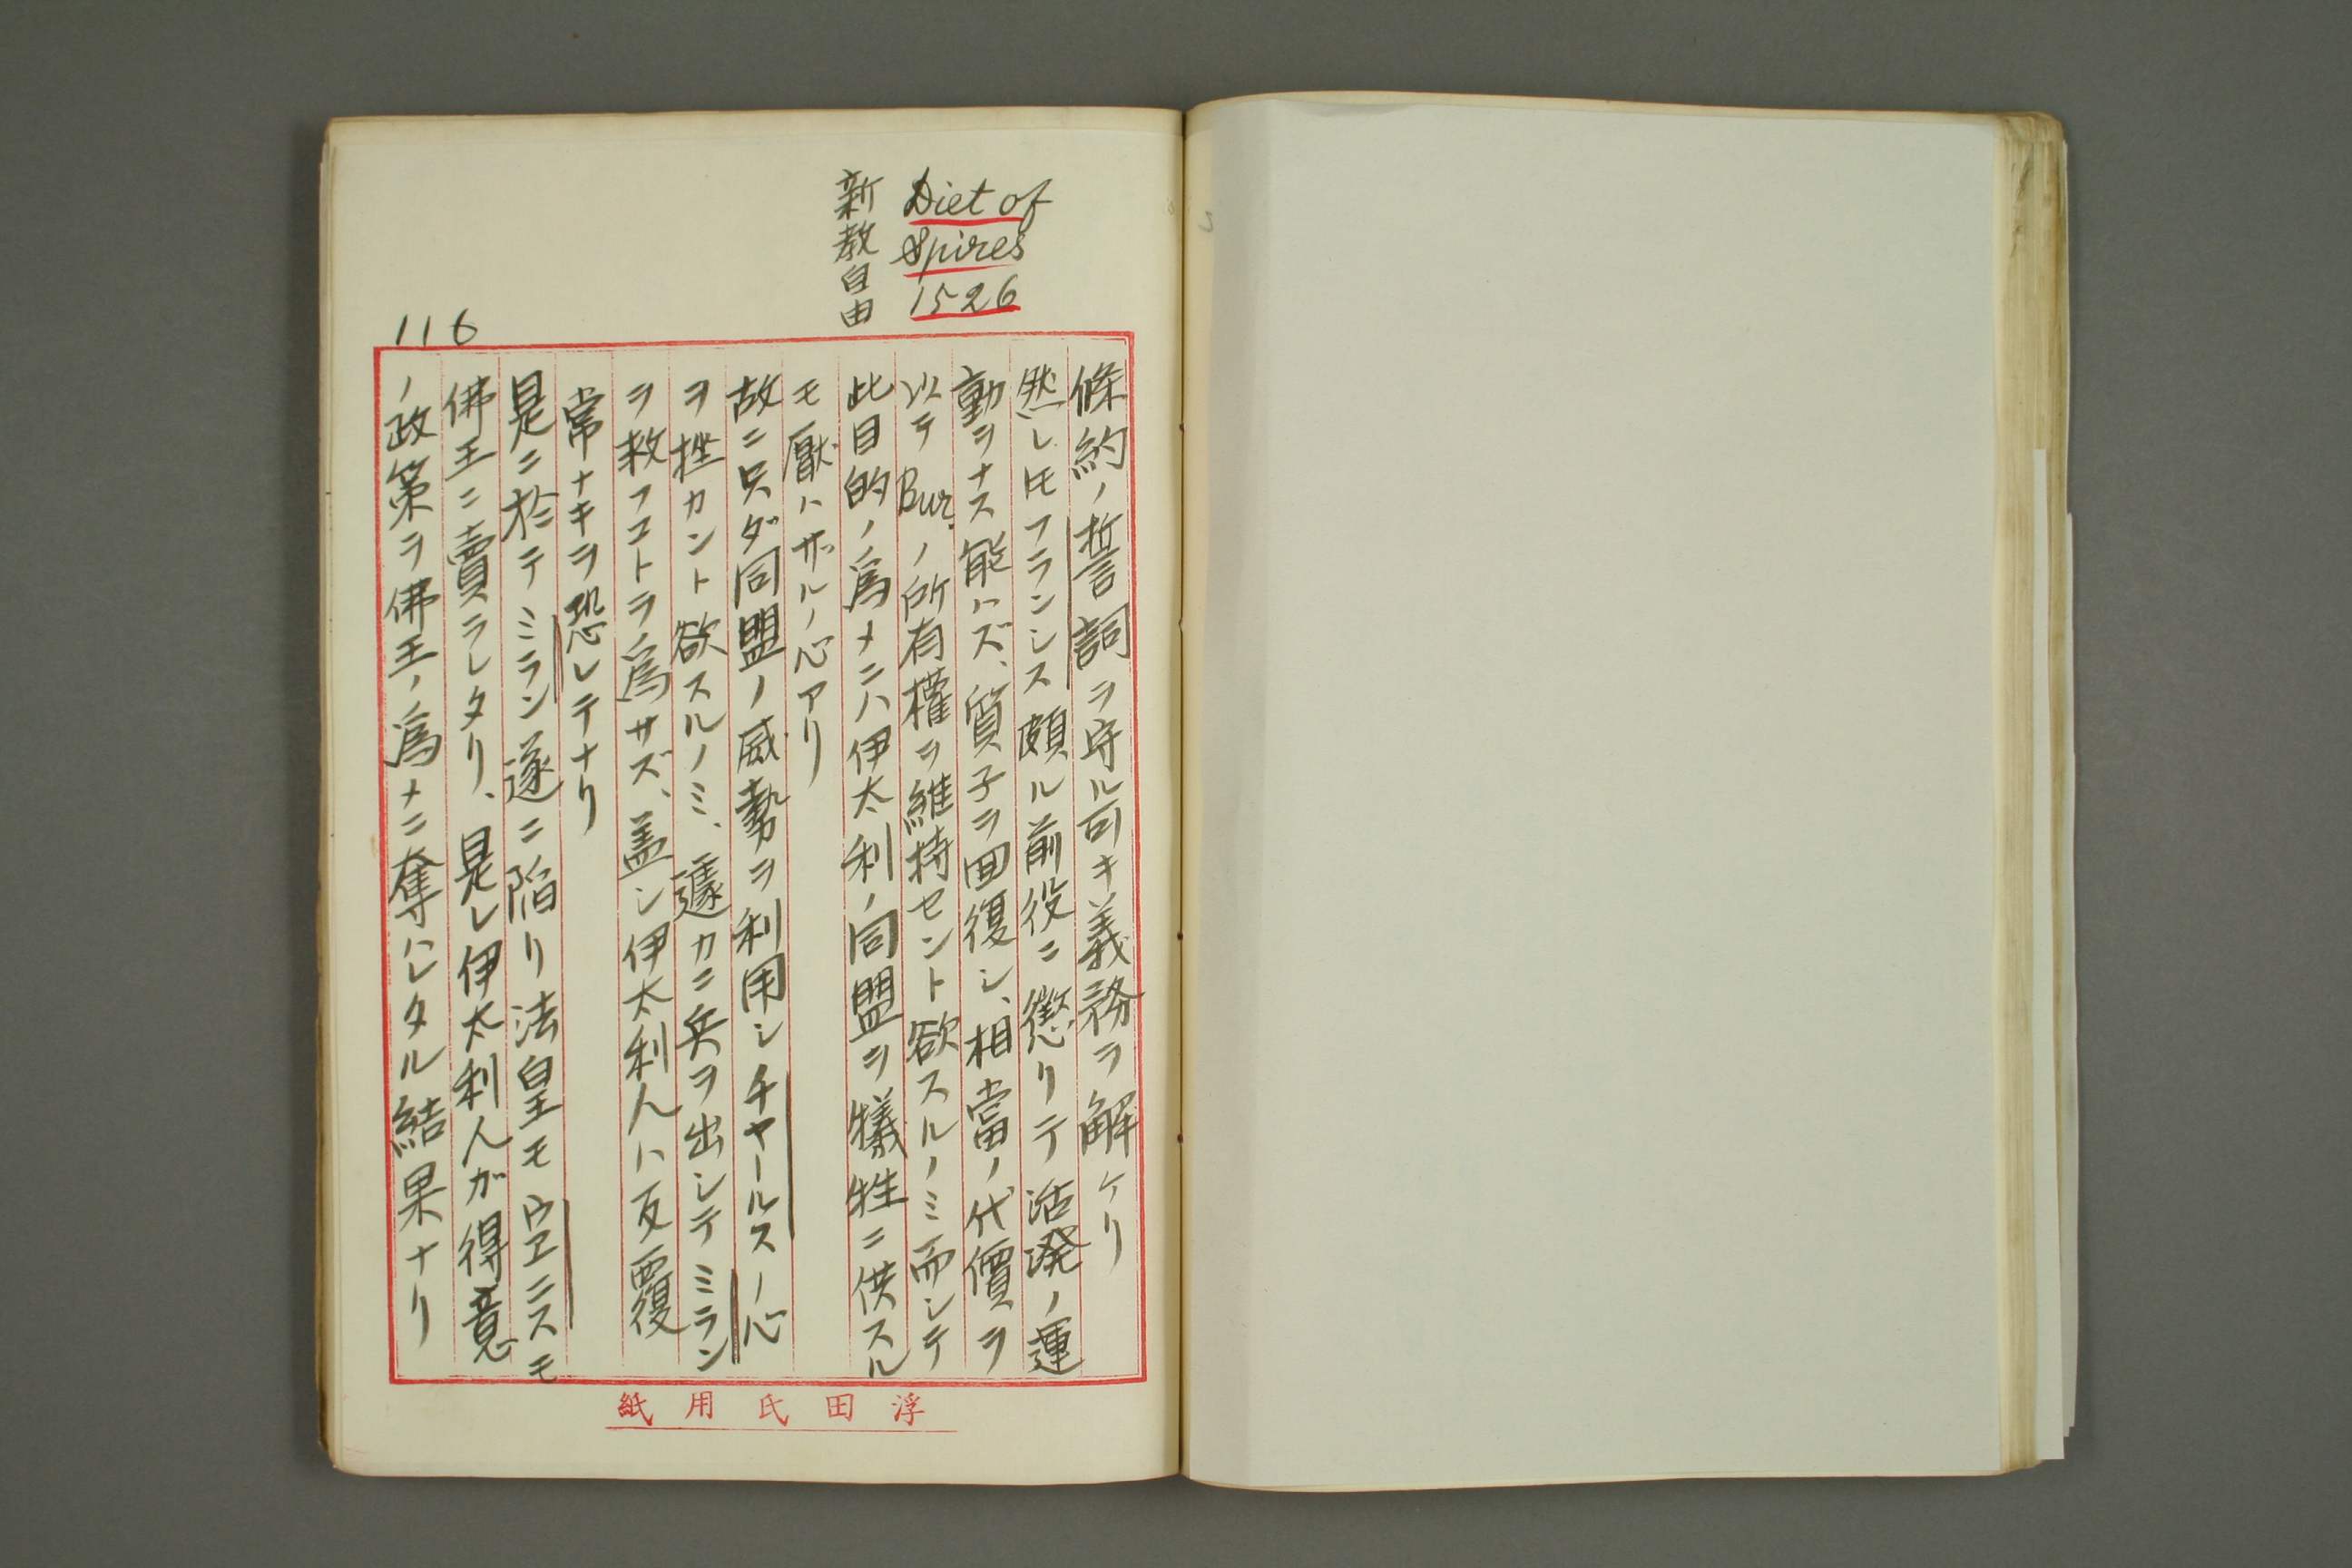 Diet of
Spires
1526
新教自由
116
條約ノ誓詞ヲ守ル可キ義務ヲ解ケリ
然レ𪜈フランシス頗ル前役ニ懲リテ活溌ノ運
動ヲナス能ハズ、質子ヲ回復シ、相當ノ代價ヲ
以テBur.ノ所有權ヲ維持セント欲スルノミ而シテ
此目的ノ爲メニハ伊太利ノ同盟ヲ犠牲ニ供スル
モ厭ハザルノ心アリ
故ニ只ダ同盟ノ威勢ヲ利用シチャールスノ心
ヲ挫カント欲スルノミ、遽カニ兵ヲ出シテミラン
ヲ救フコトヲ爲サズ、盖シ伊太利人ハ反覆
常ナキヲ恐レテナリ
是ニ於テミラン遂ニ陥リ法皇モヴエニスモ
佛王ニ賣ラレタリ、是レ伊太利人ガ得意
ノ政策ヲ佛王ノ爲メニ奪ハレタル結果ナリ
浮田氏用紙